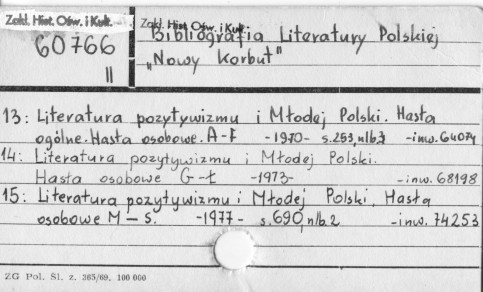 Zakł. Hist. Ośw. i Kult.
60766
II
Zakł. Hist. Ośw. i Kult.
Bibliografia Literatury Polskiej
"Nowy Korbut"
13: Literatura pozytywizmu i Młodej Polski. Hasła
ogólne. Hasła osobowe. A-F -1970- s.253, nlb.3 -inw. 64074
14: Literatura pozytywizmu i Młodej Polski.
Hasła osobowe G-Ł -1973- -inw. 68198
15: Literatura pozytywizmu i Młodej Polski. Hasła
osobowe M-S. -1977- s.690, nlb.2 -inw. 74253
ZG Pol. Śl. z. 365/69, 100 000